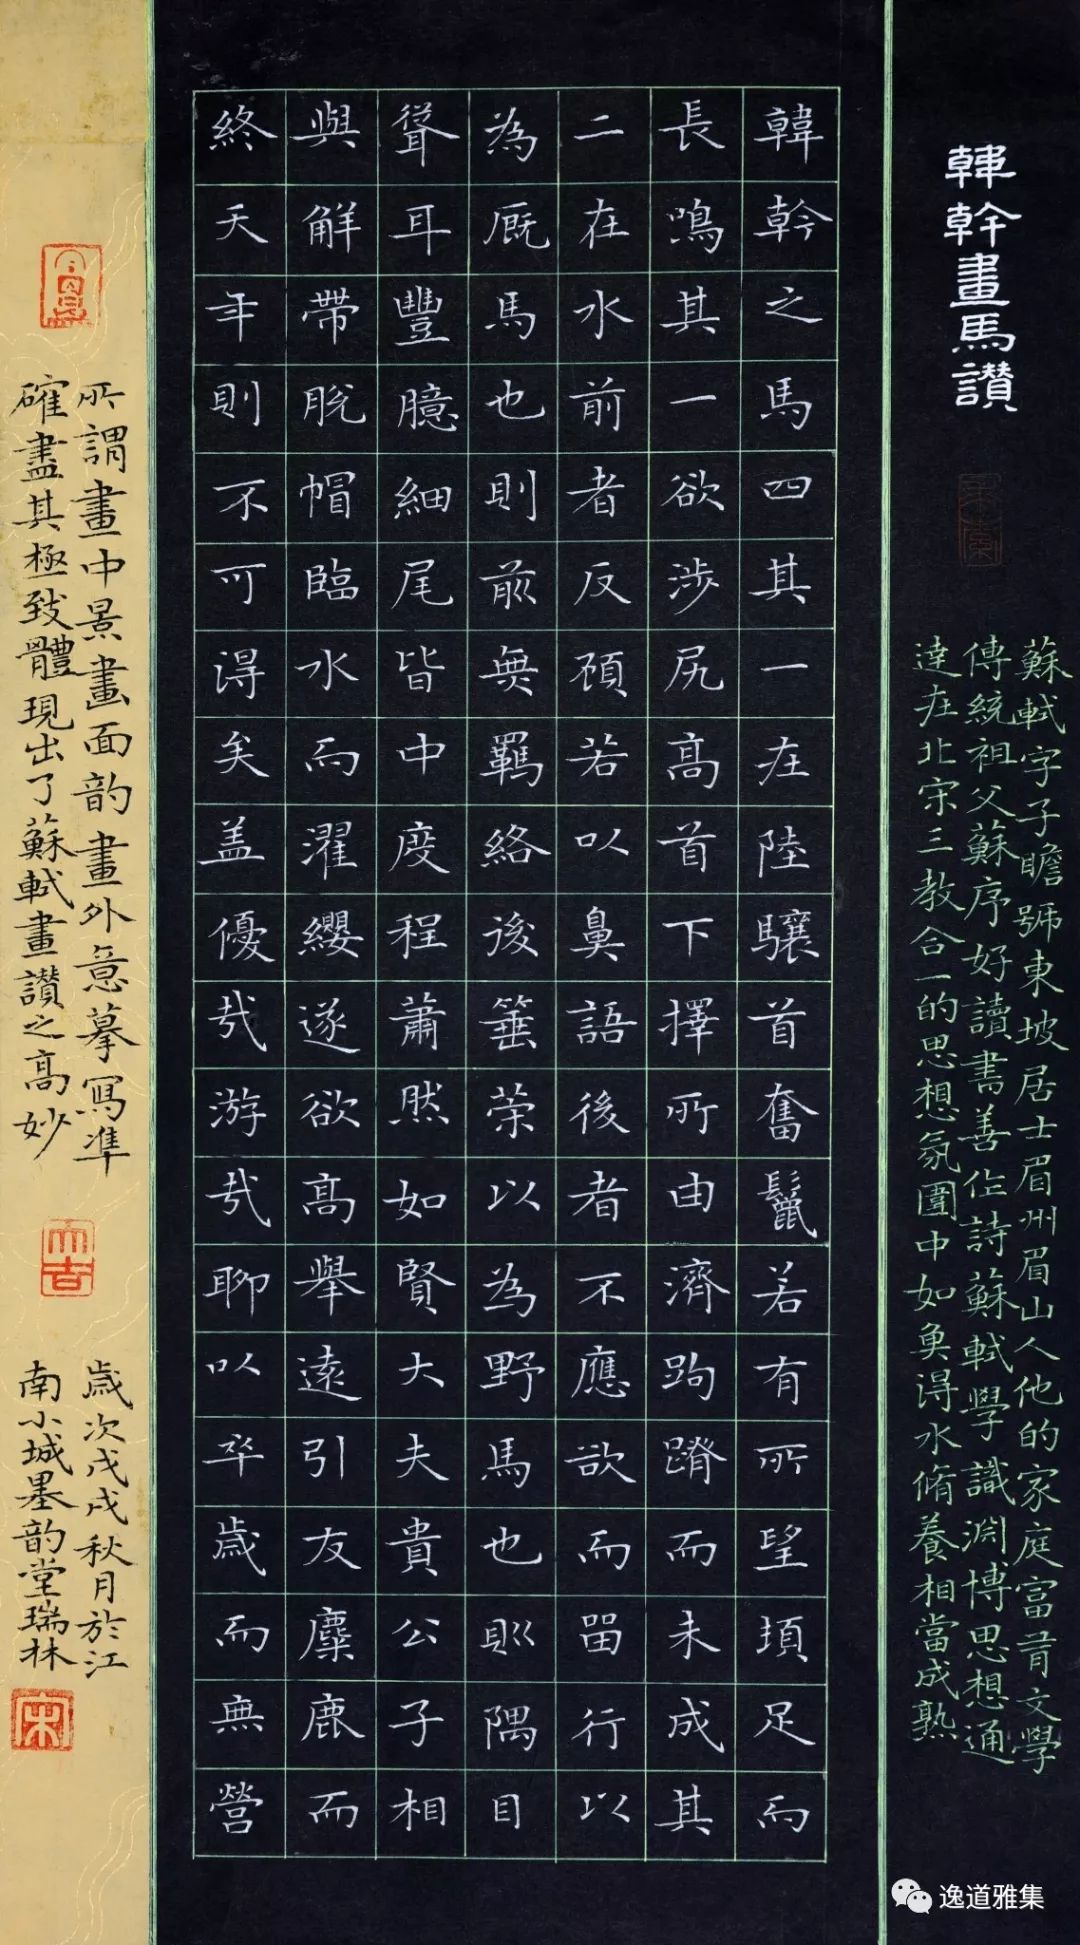 韓幹畫馬讚
蘇軾字子瞻號東坡居士眉州眉山人他的家庭富有文學
傳統祖父蘇序好讀書善作詩蘇軾學識淵博思想通
達在北宋三教合一的思想氛圍中如魚得水脩養相當成熟
韓幹之馬四其一在陸驤首奮鬣若有所望頓足而
長鳴其一欲涉尻高首下擇所由濟跼蹐而未成其
二在水前者反顧若以鼻語後者不應欲而留行以
為厩馬也則前無羈絡後箠策以為野馬也則隅目
聳耳豐臆細尾皆中度程蕭然如賢大夫貴公子相
與解帶脫帽臨水而濯纓遂欲高舉遠引友麋鹿而
終天年則不可得矣盖優哉游哉聊以卒歲而無營
所謂畫中景畫面韵畫外意摹寫準
確盡其極致體現出了蘇軾畫讚之高妙
歲次戊戌秋月於江
南小城墨韵堂瑞林
大吉
宋
逸道雅集